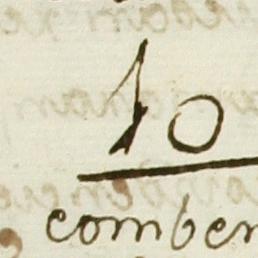 10
comber